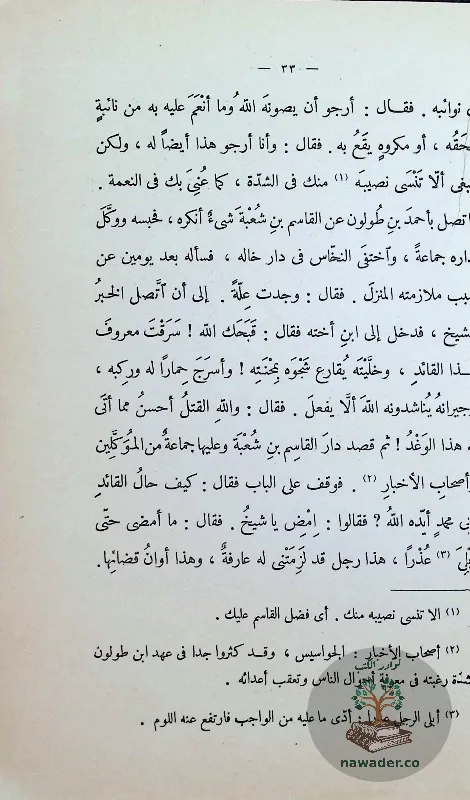 — ٣٣ —
نوائبه . فقال : أرجو أن يصونهَ اللهُ وما أنْعَمَ عليه به من نائبةٍ
، أو مكروهٍ يقَعُ به . فقال : وأنا أرجو هذا أيضاً له ، ولكن
ألّا تَنْسَى نصيبَه (١) منك فى الشدّة ، كما عُنِىَ بك فى النعمة .
تصل بأحمدَ بنِ طُولون عن القاسم بنِ شُعْبةَ شىءٌ أنكره ، فحبسه ووكَّلَ
جماعةً ، وٱختفَى النخّاس فى دار خاله ، فسأله بعد يومين عن
ملازمته المنزلَ . فقال : وجدت عِلّةً . إلى أن ٱتَّصل الخبرُ
، فدخل إلى ابنِ أخته فقال : قَبَحَك الله ! سَرَقْتَ معروفَ
القائدِ ، وخلَّيْتَه يُقارع شَجْوَه بِمِحْنَتِه ! وأسرَجَ حِماراً له وركِبه ،
يُناشدونه اللهَ ألَّا يفعلَ . فقال : واللهِ القتلُ أحسنُ مما أتَى
هذا الوَغْدُ ! ثم قصد دارَ القاسِم بنِ شُعْبَة وعليها جماعةٌ من المُوَكَّلين
أصحابِ الأخبارِ (٢) . فوقف على الباب فقال : كيف حالُ القائدِ
محمدٍ أيّده اللهُ ؟ فقالوا : اِمْضِ يا شيخُ . فقال : ما أمضى حتّى
(٣) عُذْراً ، هذا رجل قد لَزِمَتْنى له عارفةٌ ، وهذا أوانُ قضائِها .
(١) الا تنسى نصيبه منك . أى فضل القاسم عليك .
(٢) أصحاب الأخبار : الجواسيس ، وقد كثروا جدا فى عهد ابن طولون
رغبته فى معرفة أحوال الناس وتعقب أعدائه .
(٣) أبلى الرجل عذرا : أدّى ما عليه من الواجب فارتفع عنه اللوم .
نوادر الكتب
nawader.co